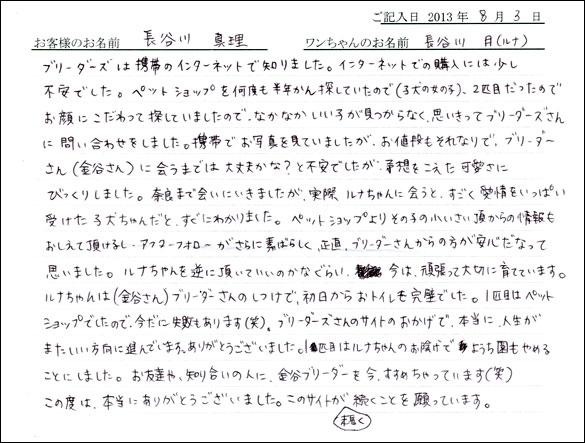 ご記入日 2013年 8月 3日
お客様のお名前 長谷川 真理 ワンちゃんのお名前 長谷川 月(ルナ)
ブリーダーズは携帯のインターネットで知りました。インターネットでの購入には少し
不安でした。ペットショップを何度も半年かん探していたので(子犬の女の子)、2匹目だったので
お顔にこだわって探していましたので、なかなかいい子が見つからなく、思いきってブリーダーズさん
に問い合わせをしました。携帯でお写真を見ていましたが、お値段もそれなりで、ブリーダー
さん(金谷さん)に会うまでは大丈夫かな?と不安でしたが、予想をこえた可愛さに
びっくりしました。奈良まで会いにいきましたが、実際ルナちゃんに会うと、すごく愛情をいっぱい
受けた子犬ちゃんだと、すぐにわかりました。ペットショップよりその子の小いさい頃からの情報も
おしえて頂けるし、アフターフォローがさらに素ばらしく、正直、ブリーダーさんからの方が安心だなって
思いました。ルナちゃんを逆に頂いていいのかなぐらい、今は、頑張って大切に育てています。
ルナちゃんは(金谷さん)ブリーダーさんのしつけで、初日からおトイレも完璧でした。1匹目はペット
ショップでしたので、今だに失敗もあります(笑)、ブリーダーズさんのサイトのおかげで、本当に、人生が
またいい方向に進んでいます、ありがとうございました。1匹目はルナちゃんのお陰でようち園もやめる
ことにしました。お友達や、知り合いの人に、金谷ブリーダーを今、すすめちゃっています(笑)
この度は、本当にありがとうございました。このサイトが末長く続くことを願っています。